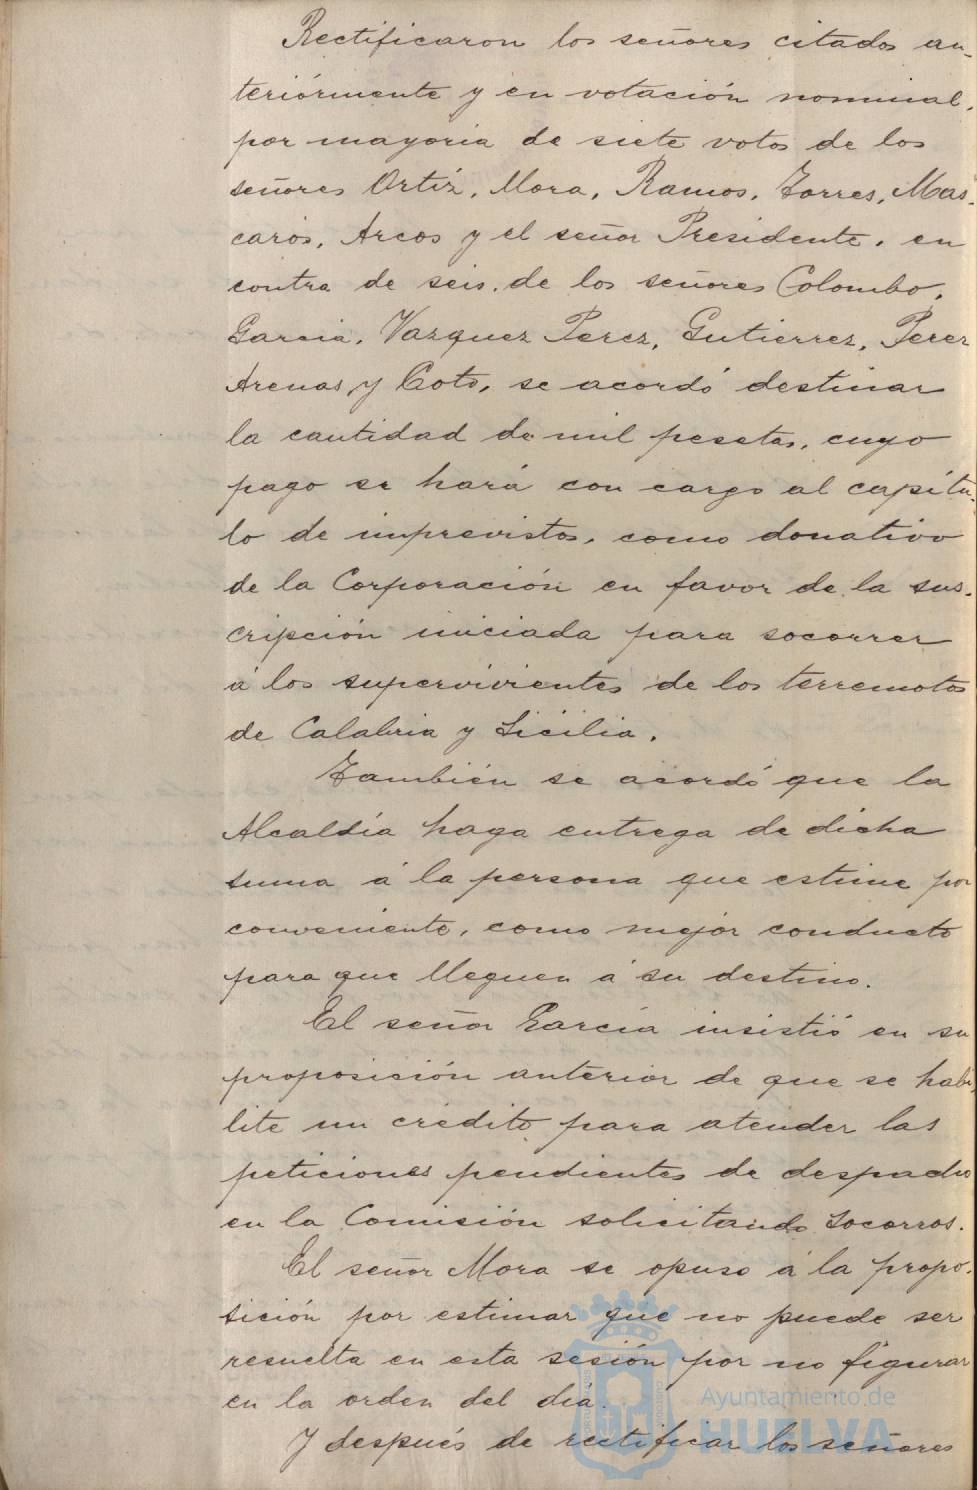 Rectificaron los señores citados an-
teriórmente y en votación nominal,
por mayoria de siete votos de los
señores Ortíz, Mora, Ramos, Torres, Mas-
carós, Arcos y el señor Presidente, en
contra de seis, de los señores Colombo,
Garcia, Vazquez Perez, Gutierrez, Perez
Arenas y Coto, se acordó destinar
la cantidad de mil pesetas, cuyo
pago se hará con cargo al capítu-
lo de imprevistos, como donativo
de la Corporación en favor de la sus-
cripción iniciada para socorrer
á los supervivientes de los terremotos
de Calabria y Sicilia.
También se acordó que la
Alcaldía haga entrega de dicha
suma á la persona que estime por
conveniente, como mejór conducto
para que lleguen á su destino.
El señor García insistió en su
proposisión anterior de que se habi-
lite un crédito para atender las
peticiones pendientes de despacho
en la Comisión solicitando socorros.
El señor Mora se opuso á la propo-
sición por estimar que no puede ser
resuelta en esta sesión por no figurar
en la orden del día.
Y después de rectificar los señores
Ayuntamiento de
HUELVA